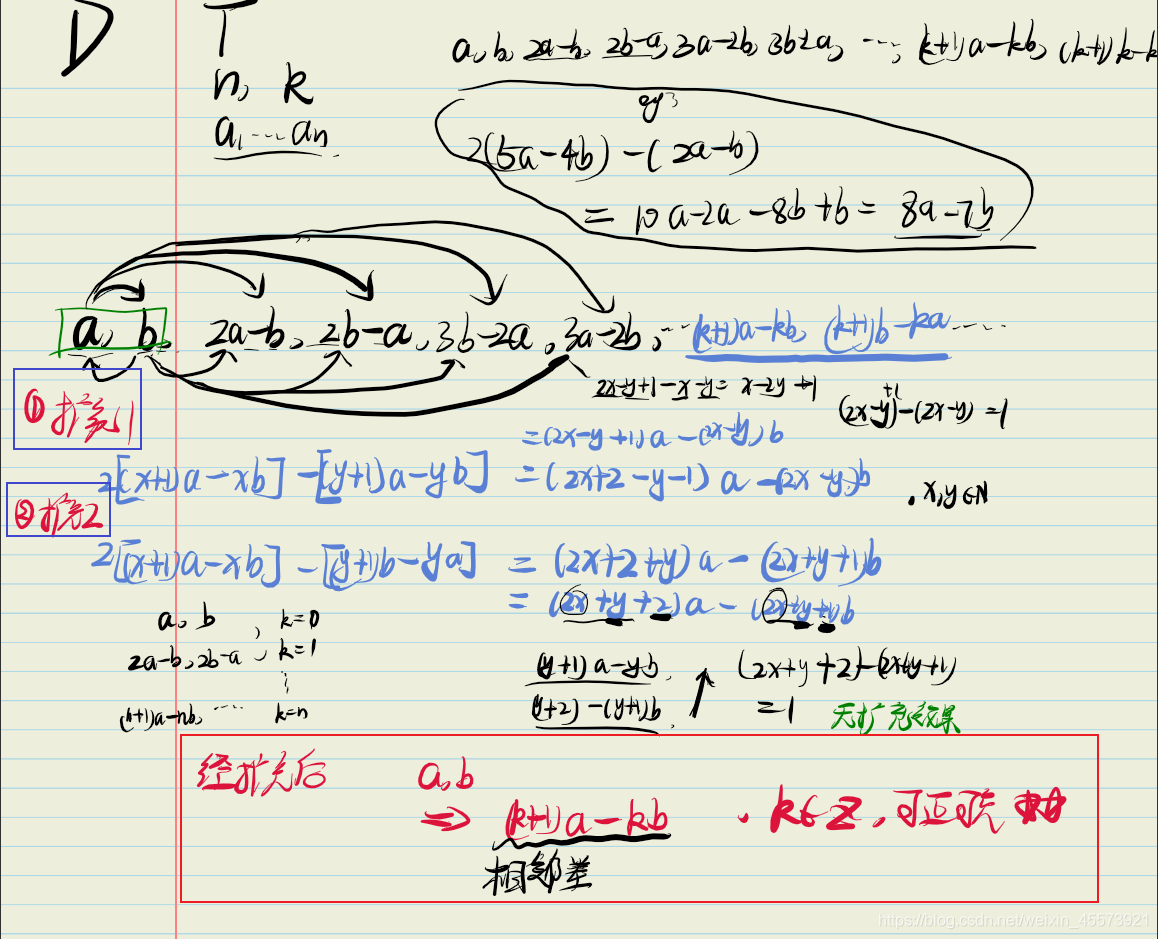 D T
n, k
a₁ ... aₙ
a, b, 2a-b, 2b-a, 3a-2b, 3b-2a, ..., (k+1)a-kb, (k+1)k-k
2(5a-4b)-(2a-b)
= 10a-2a-8b+b = 8a-7b
a, b, 2a-b, 2b-a, 3b-2a, 3a-2b, ... (k+1)a-kb, (k+1)b-ka ....
①扩充1
2x-y+1-x-y= x-2y+1
(2x-y)+1-(2x-y)=1
=(2x-y+1)a-(2x-y)b
2[(x+1)a-xb]-[(y+1)a-yb] =(2x+2-y-1)a-(2x-y)b
. x,y∈N
②扩充2
2[(x+1)a-xb]-[(y+1)b-ya] = (2x+2+y)a-(2x+y+1)b
= (2x+y+2)a-(2x+y+1)b
a, b , k=0
2a-b, 2b-a , k=1
(n+1)a-nb, .... k=n
(y+1)a-yb,
(y+2)-(y+1)b,
(2x+y+2)-(2x+y+1)
=1
无扩充效果
经扩充后 a,b
=> (k+1)a-kb . k∈Z,可正可负
相邻差
https://blog.csdn.net/weixin_45573921